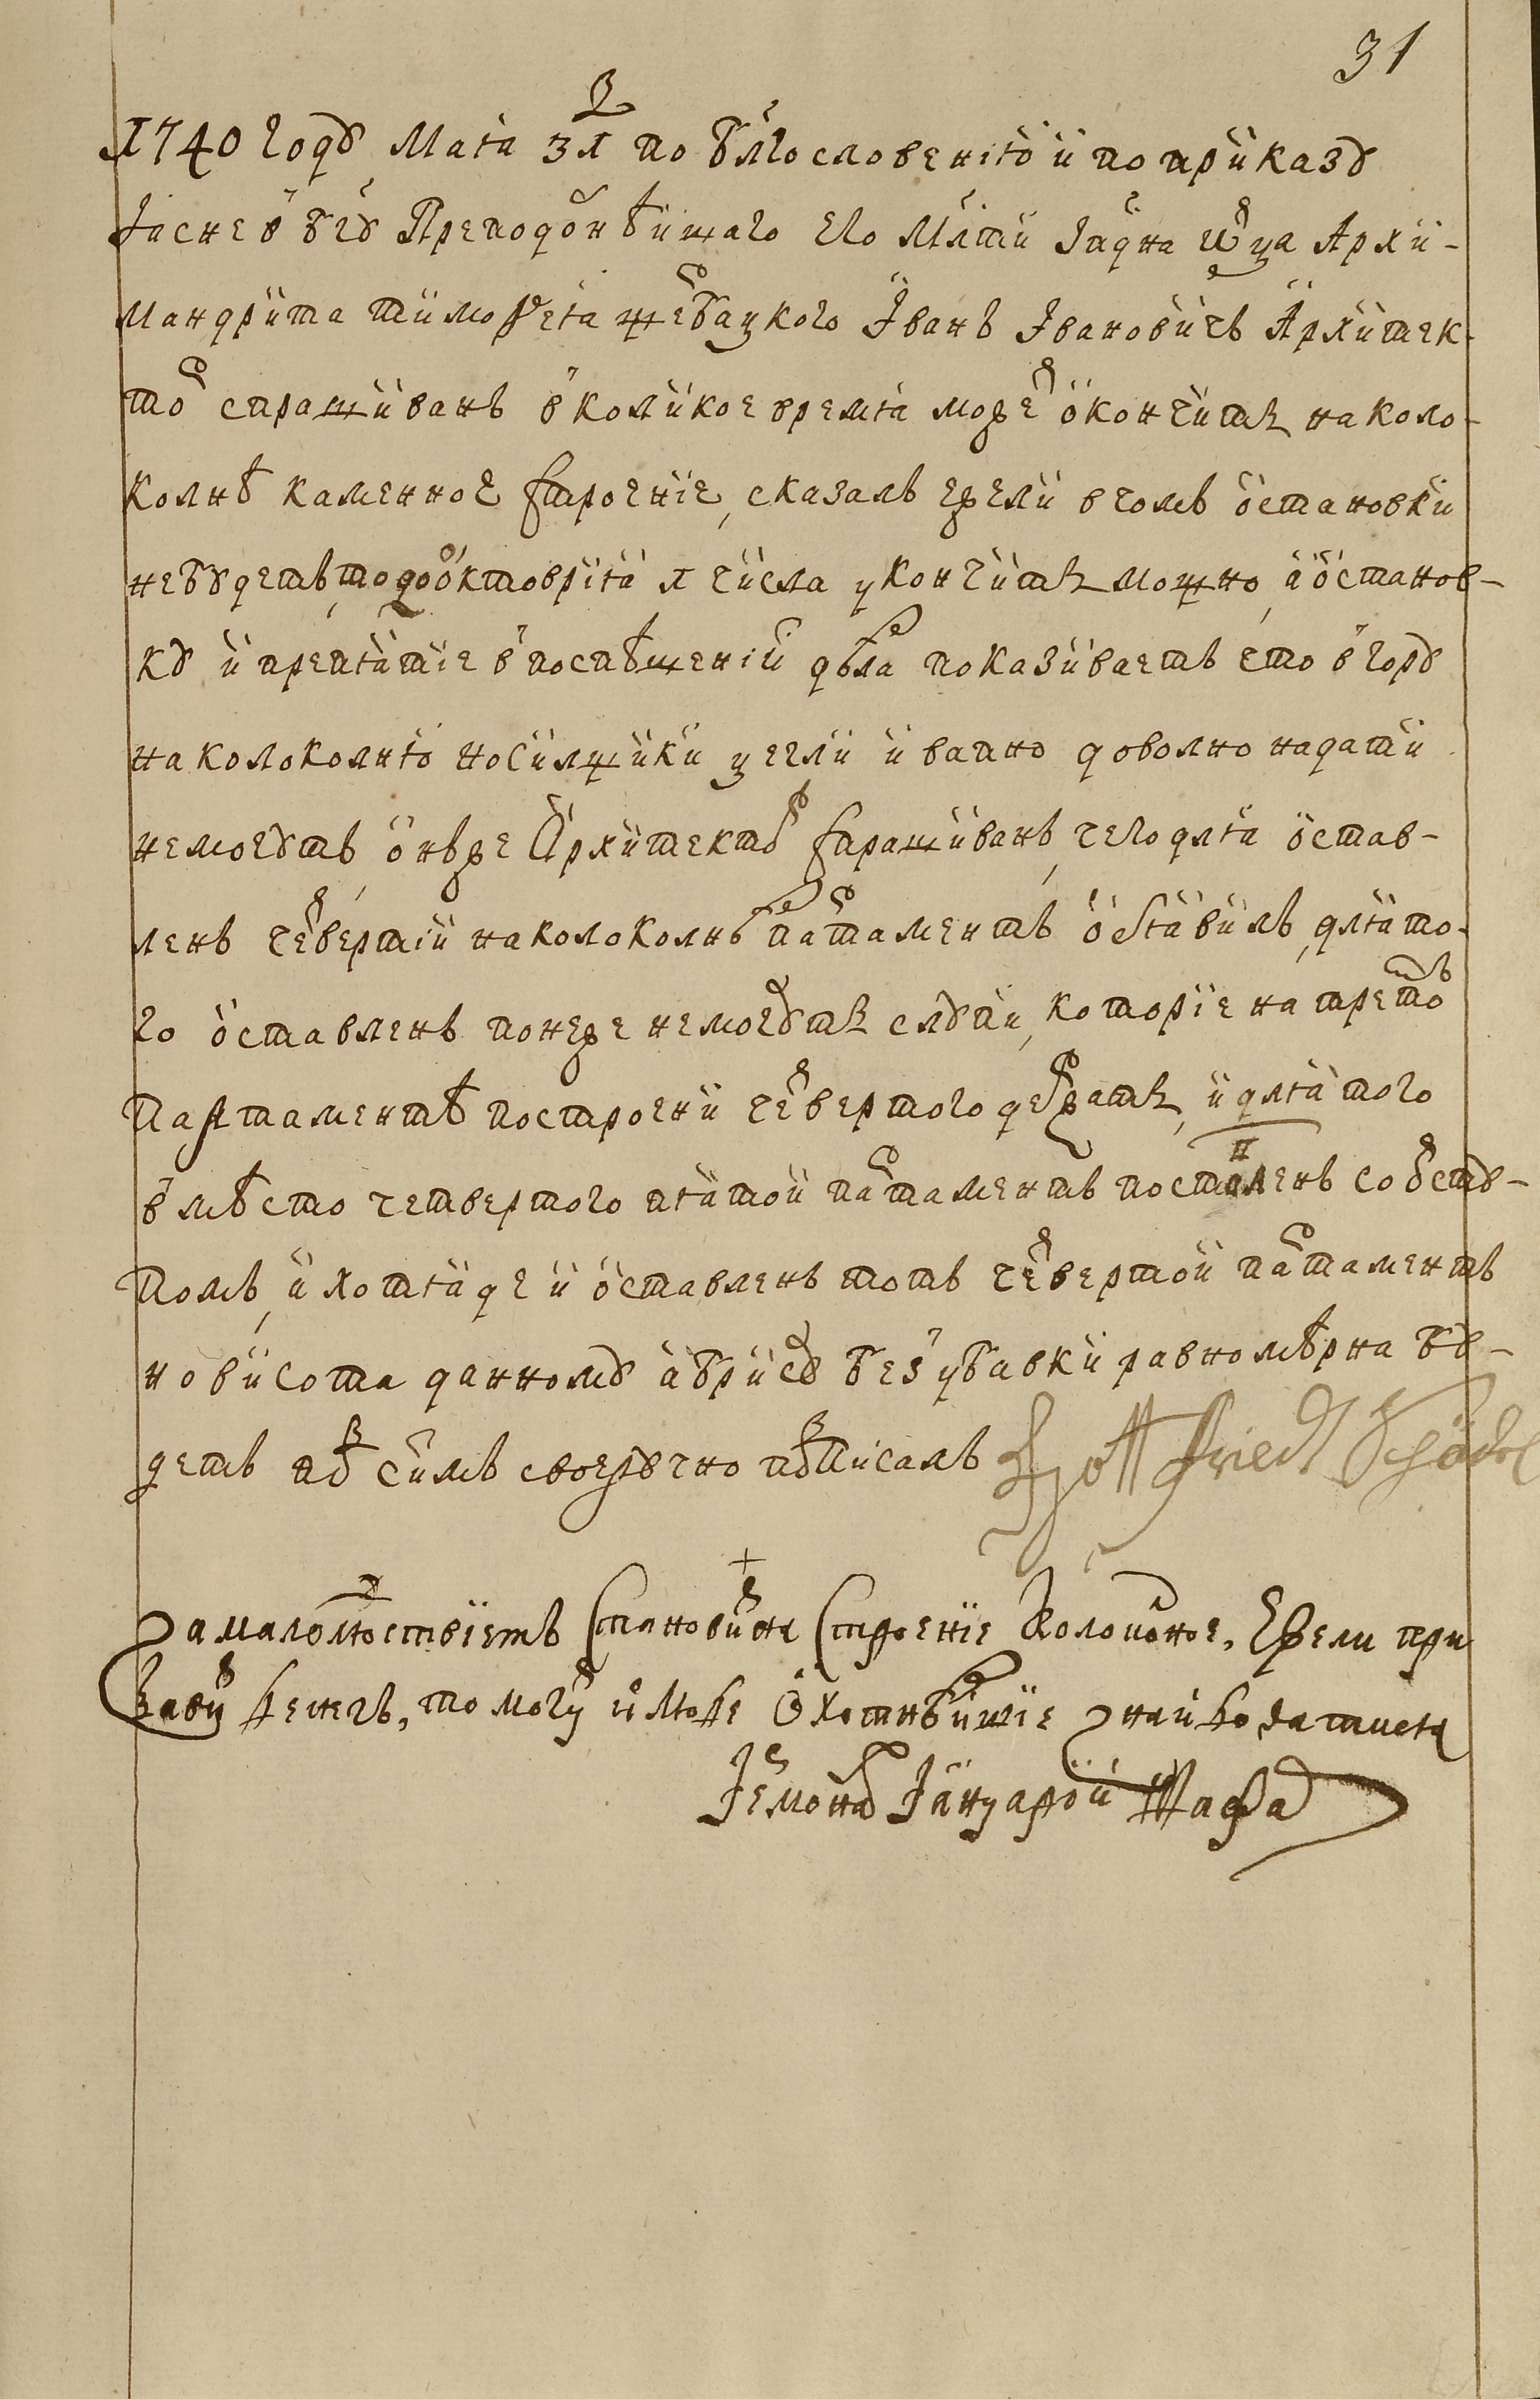 31
1740 годꙋ Маѧ 31 по бл҃гословенїю и по приказꙋ
Ꙗсне в Бг҃ꙋ Преподобнѣйшаго Его Мл҃сти Гпдна ѿца Архи-
мандрита Тимоѳеѧ Щербацкого Іванъ Івановичъ Архитек-
торъ спрашиванъ в коликое времѧ может окончить на коло-
колнѣ каменное строение, сказалъ ежели в чомъ остановки
не будетъ, то до октоврїѧ 1 числа укончить можно, а останов-
кꙋ и препѧтїе в поспѣшенїи дѣла показиваетъ что в горꙋ
на колоколню носилщики цегли и вапно доволно надати
не могꙋтъ, онъ же Архитектор спрашиванъ, чего длѧ остав-
ленъ четвертїй на колоколнѣ партаментъ оставилъ, длѧ то-
го оставленъ понеже не могꙋть слꙋпи, которїе на третом
партаментѣ построени четвертого держать, и длѧ того
вмѣсто четвертого пѧтой партаментъ поставленъ со встꙋ-
помъ, и хотѧ де и оставленъ тотъ четвертой партаментъ
но висота данномꙋ абрисꙋ без убавки равномѣрна бꙋ-
детъ под симъ своерꙋчно подписалъ Gottfriedt Schädel
За маломощствїемъ становится строение колоколное, Ежели при-
бавит денегъ, то могут и може охотнѣйшїе знайдоватися
Іеромонах Іануарїй Шафа